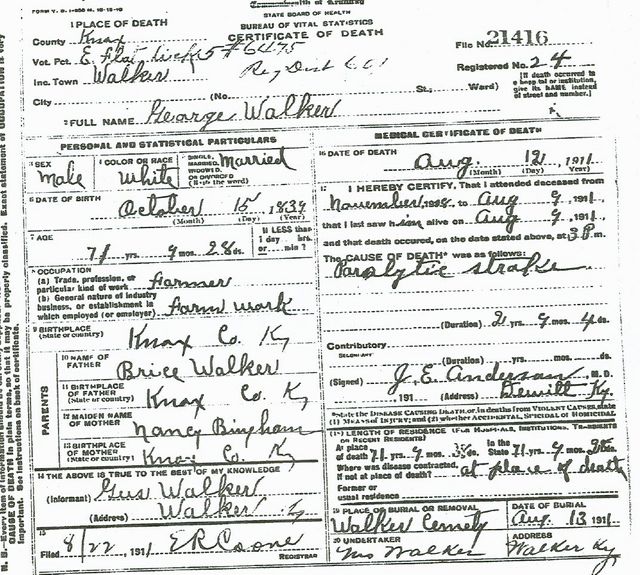 FORM V. S.
Commonwealth of Kentucky
STATE BOARD OF HEALTH
BUREAU OF VITAL STATISTICS
CERTIFICATE OF DEATH
1 PLACE OF DEATH
County Knox
Vot. Pct. E. Flat lick 5 #6475
Inc. Town Walker
Reg Dist 661
File No. 21416
Registered No. 24
City (No. St., Ward)
(If death occurred in a hospital or institution, give its NAME instead of street and number.)
2 FULL NAME George Walker
PERSONAL AND STATISTICAL PARTICULARS
3 SEX Male
4 COLOR OR RACE White
5 SINGLE, MARRIED, WIDOWED, OR DIVORCED (Write the word) Married
6 DATE OF BIRTH October 15, 1839
(Month) (Day) (Year)
7 AGE 71 yrs. 9 mos. 28 ds.
If LESS than 1 day hrs. or min?
8 OCCUPATION
(a) Trade, profession, or particular kind of work Farmer
(b) General nature of industry business, or establishment in which employed (or employer) Farm work
9 BIRTHPLACE (State or country) Knox Co. Ky
PARENTS
10 NAME OF FATHER Brice Walker
11 BIRTHPLACE OF FATHER (State or country) Knox Co. Ky
12 MAIDEN NAME OF MOTHER Nancy Bingham
13 BIRTHPLACE OF MOTHER (State or country) Knox Co. Ky
14 THE ABOVE IS TRUE TO THE BEST OF MY KNOWLEDGE
(Informant) Gus Walker
(Address) Walker Ky
15 Filed 8/22, 1911 E R Coone REGISTRAR
MEDICAL CERTIFICATE OF DEATH
16 DATE OF DEATH Aug. 12, 1911
(Month) (Day) (Year)
17 I HEREBY CERTIFY, That I attended deceased from
November, 1908, to Aug 9, 1911,
that I last saw him alive on Aug 9, 1911,
and that death occured, on the date stated above, at 3 P m.
The CAUSE OF DEATH* was as follows:
Paralytic stroke
(Duration) 2 yrs. 9 mos. 4 ds.
Contributory
SECONDARY
(Duration) yrs. mos. ds.
(Signed) J. E. Anderson, M. D.
, 191 (Address) Dewitt Ky.
*State the DISEASE CAUSING DEATH, or, in deaths from VIOLENT CAUSES, state (1) MEANS OF INJURY; and (2) whether ACCIDENTAL, SUICIDAL OR HOMICIDAL.
18 LENGTH OF RESIDENCE (FOR HOSPITALS, INSTITUTIONS, TRANSIENTS OR RECENT RESIDENTS)
At place of death 71 yrs. 9 mos. ds. In the State 71 yrs. 9 mos. ds.
Where was disease contracted, if not at place of death? at place of death
Former or usual residence
19 PLACE OF BURIAL OR REMOVAL Walker Cemety
DATE OF BURIAL Aug. 13 1911
20 UNDERTAKER Mrs Walker
ADDRESS Walker Ky